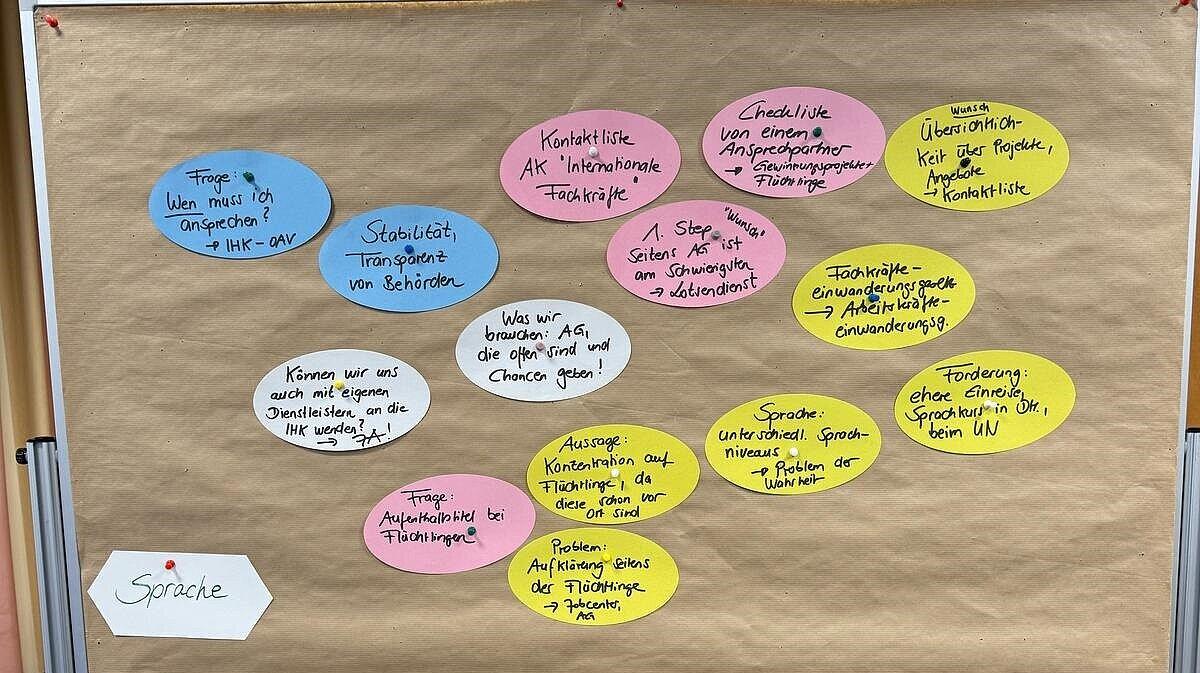 Frage:
Wen muss ich
ansprechen?
→ IHK - OAV
Stabilität,
Transparenz
von Behörden
Kontaktliste
AK "Internationale
Fachkräfte"
Checkliste
von einem
Ansprechpartner
→ Gewinnungsprojekte +
Flüchtlinge
Wunsch
Übersichtlich-
keit über Projekte,
Angebote
→ Kontaktliste
1. Step "Wunsch"
seitens AG ist
am Schwierigsten
→ Lotsendienst
Fachkräfte-
einwanderungsgesetz
→ Arbeitskräfte-
einwanderungsg.
Was wir
brauchen: AG,
die offen sind und
Chancen geben!
Können wir uns
auch mit eigenen
Dienstleistern an die
IHK wenden?
→ JA!
Forderung:
ehere Einreise,
Sprachkurs in Dtl.,
beim UN
Sprache:
unterschiedl. Sprach-
niveaus
→ Problem der
Wahrheit
Aussage:
Konzentration auf
Flüchtlinge, da
diese schon vor
Ort sind
Frage:
Aufenthaltstitel bei
Flüchtlingen
Problem:
Aufklärung seitens
der Flüchtlinge
→ Jobcenter,
AG
Sprache